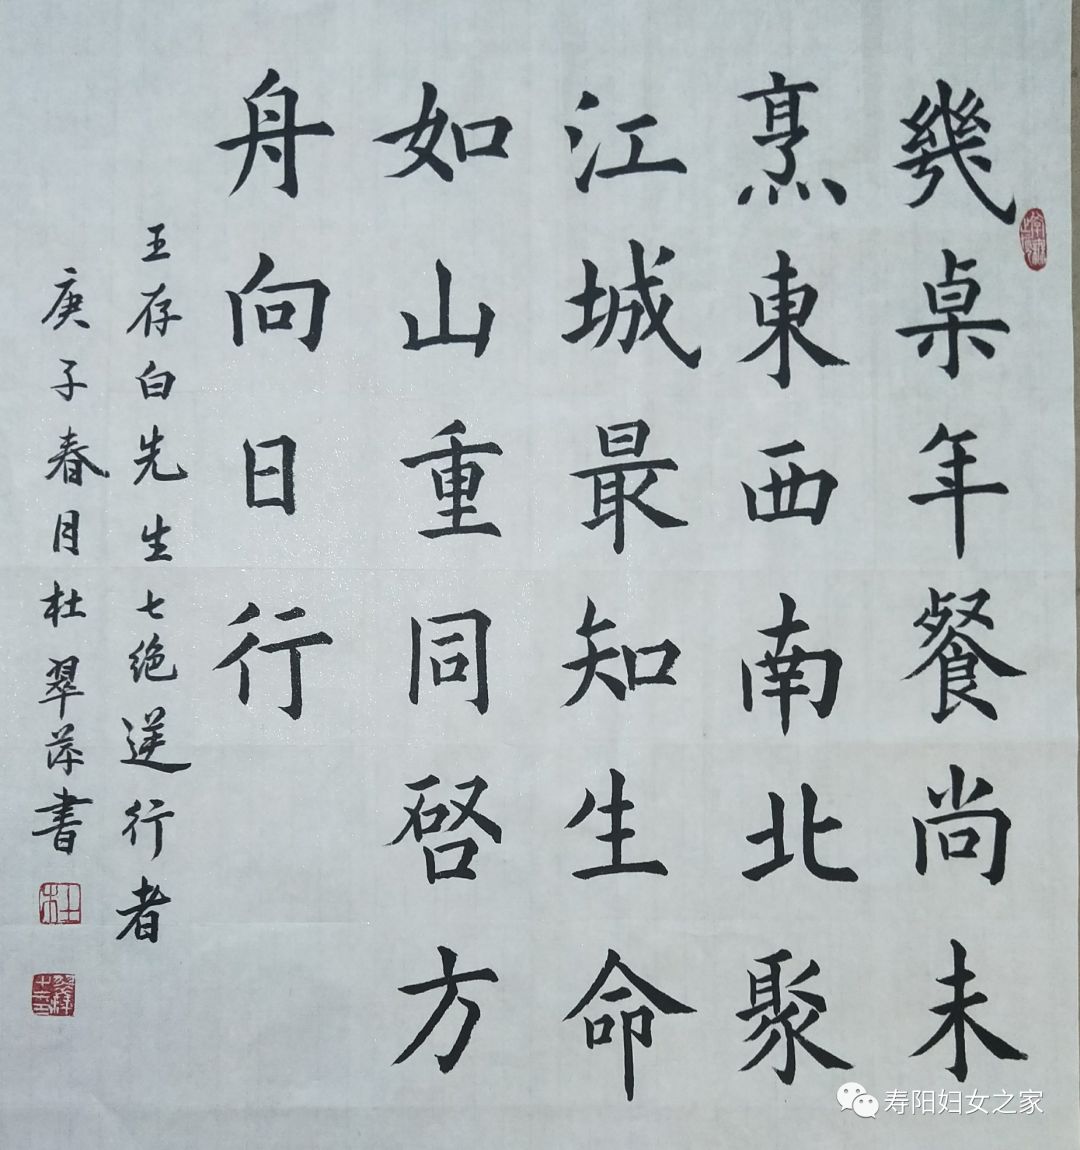 幾桌年餐尚未
烹東西南北聚
江城最知生命
如山重同啓方
舟向日行
王存白先生七绝逆行者
庚子春月杜翠萍書
杜
寿阳妇女之家